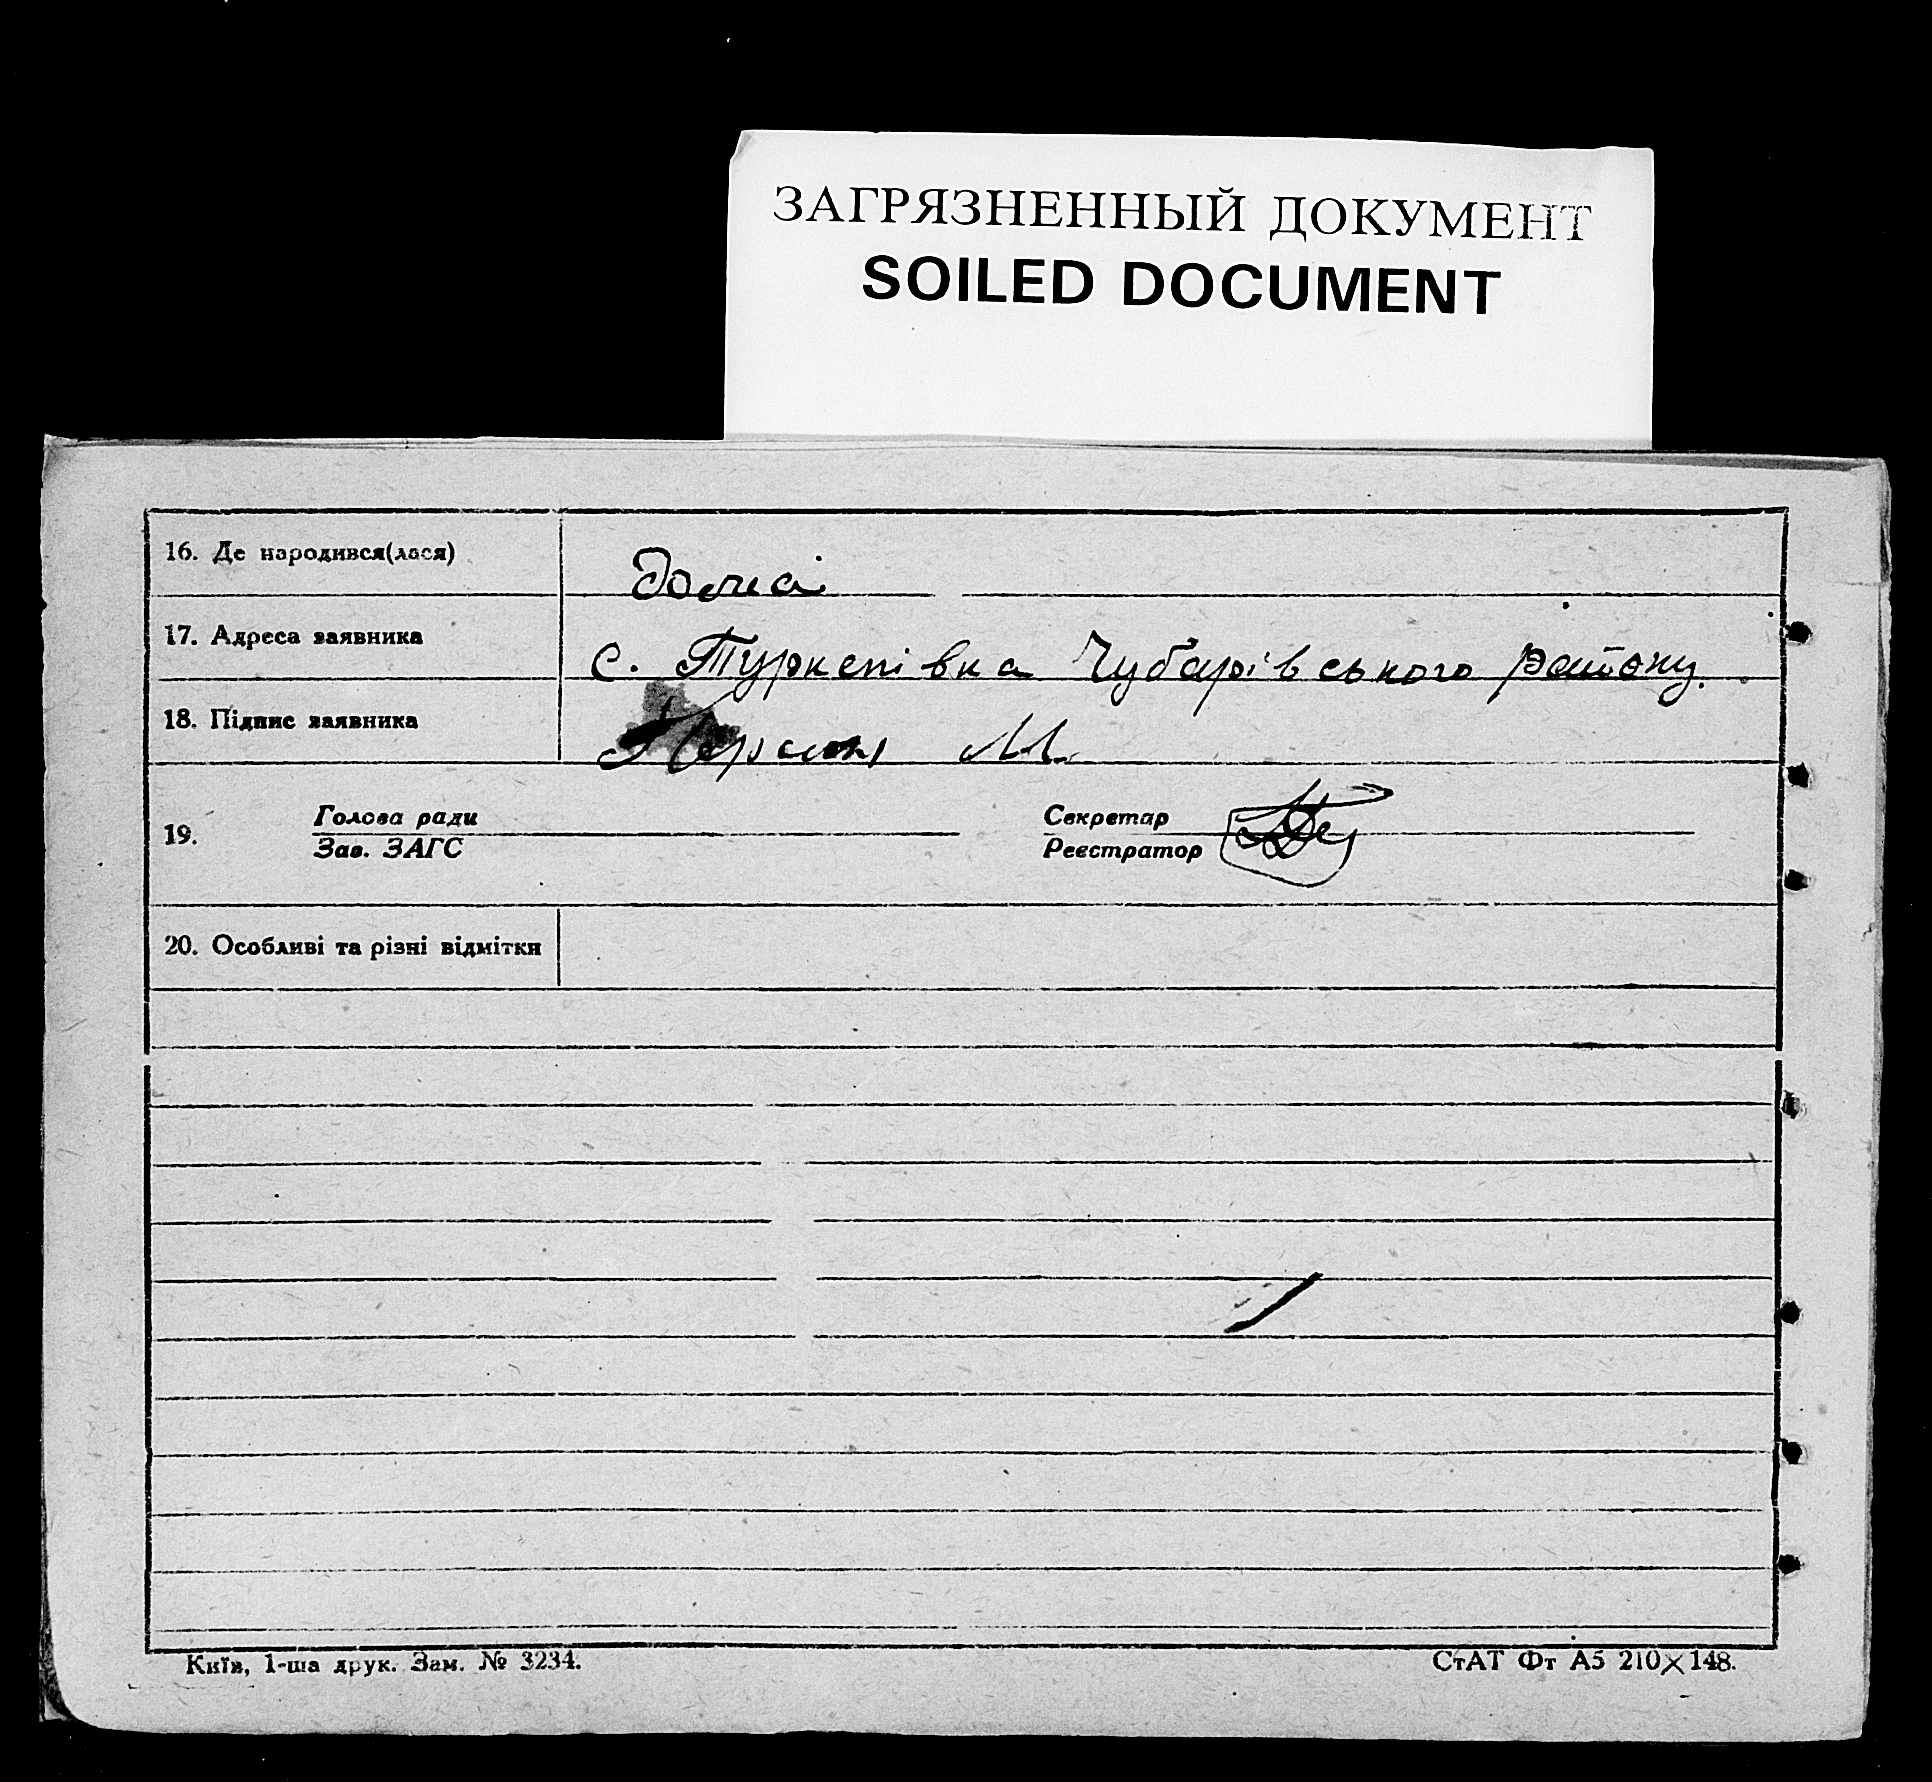 ЗАГРЯЗНЕННЫЙ ДОКУМЕНТ
SOILED DOCUMENT
16. Де народився(лася)
дома
17. Адреса заявника
с. Туркенівка Чубарівського району.
18. Підпис заявника
М.
19.
Голова ради
Зав. ЗАГС
Секретар
Реєстратор
20. Особливі та різні відмітки
Київ, 1-ша друк. Зам. № 3234.
СтАТ Фт А5 210×148.